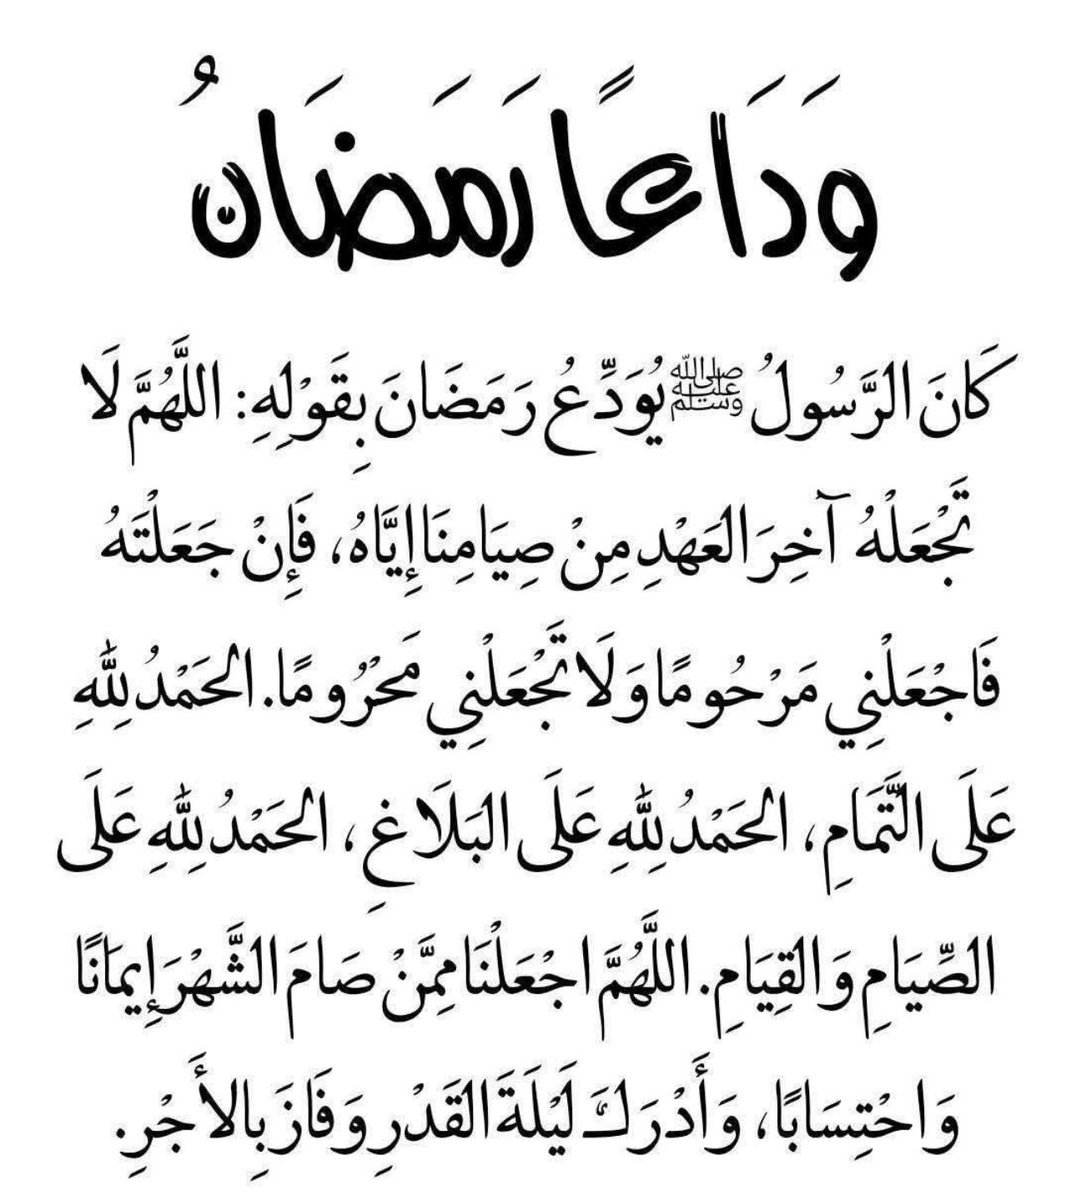 وَدَاعًا رَمَضَانُ
كَانَ الرَّسُولُ ﷺ يُوَدِّعُ رَمَضَانَ بِقَوْلِهِ: اللَّهُمَّ لَا
تَجْعَلْهُ آخِرَ العَهْدِ مِنْ صِيَامِنَا إِيَّاهُ، فَإِنْ جَعَلْتَهُ
فَاجْعَلْنِي مَرْحُومًا وَلَا تَجْعَلْنِي مَحْرُومًا. الحَمْدُ لِلّٰهِ
عَلَى التَّمَامِ، الحَمْدُ لِلّٰهِ عَلَى البَلَاغِ، الحَمْدُ لِلّٰهِ عَلَى
الصِّيَامِ وَالقِيَامِ. اللَّهُمَّ اجْعَلْنَا مِمَّنْ صَامَ الشَّهْرَ إِيمَانًا
وَاحْتِسَابًا، وَأَدْرَكَ لَيْلَةَ القَدْرِ وَفَازَ بِالأَجْرِ.